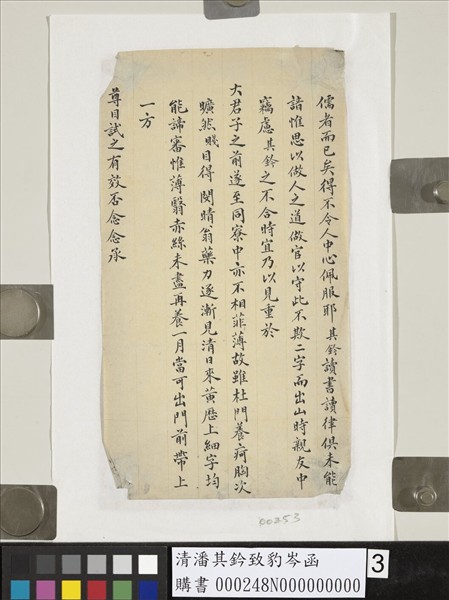 儒者而已矣得不令人中心佩服耶其鈐讀書讀律俱未能
諳惟思以做人之道做官以守此不欺二字而出山時親友中
竊慮其鈐之不合時宜乃以見重於
大君子之前遂至同寮中亦不相菲薄故雖杜門養疴胸次
曠然賤目得閔晴翁藥力逐漸見清日來黃曆上細字均
能諦審惟薄翳赤絲未盡再養一月當可出門前帶上
一方
尊目試之有效否念念承
00253
清潘其鈐致豹岑函
購書 000248N000000000
3